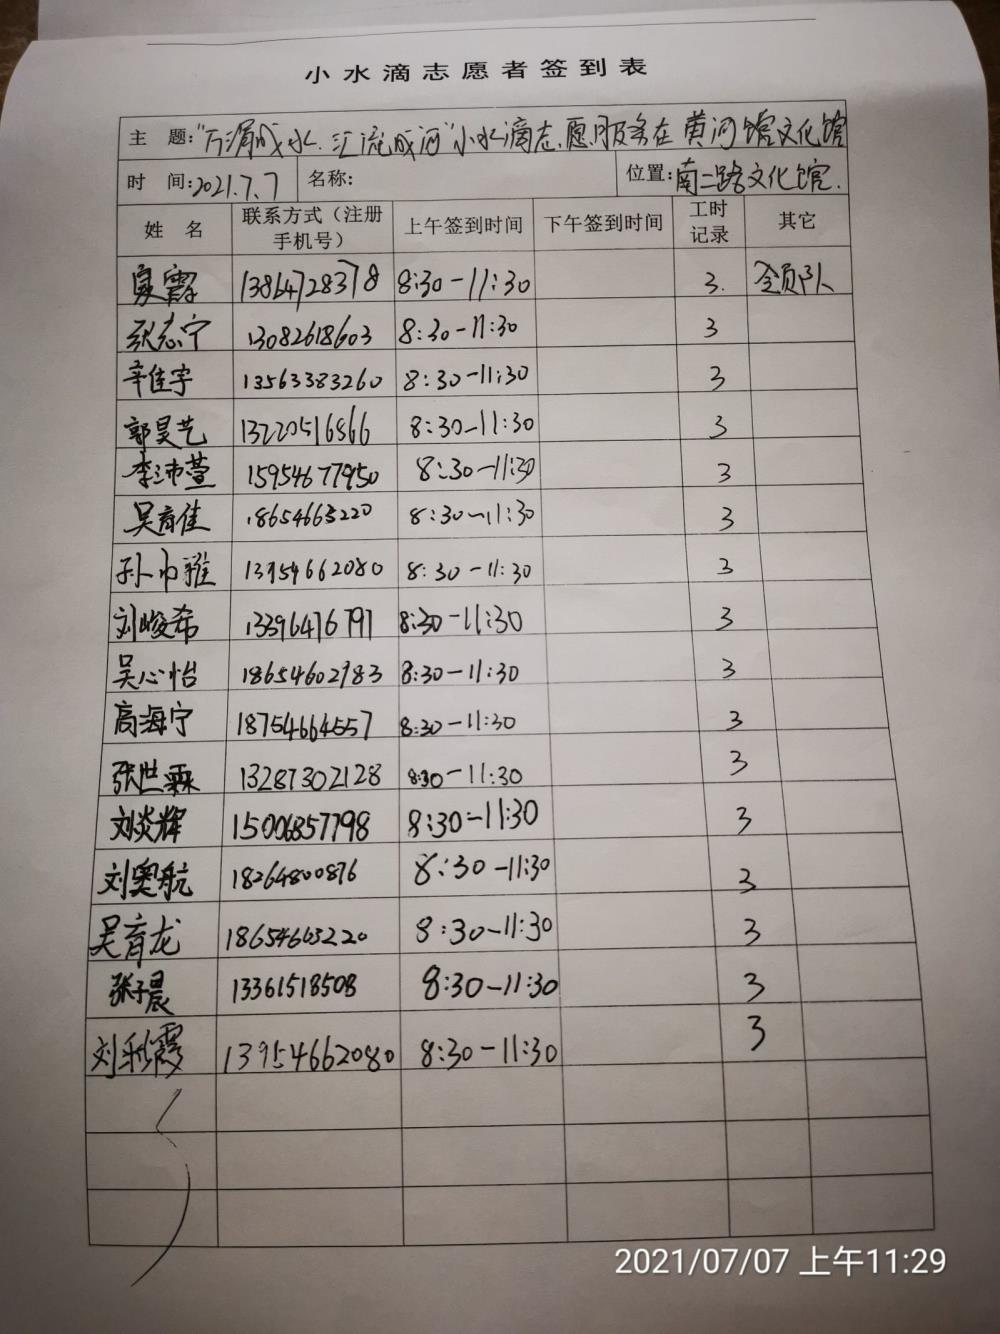 小水滴志愿者签到表
主 题:“万涓成水、汇流成河”小水滴志愿服务在黄河馆文化馆
时 间:2021.7.7 名称: 位置:南二路文化馆.
姓 名 联系方式（注册手机号） 上午签到时间 下午签到时间 工时记录 其它
霞 13864728378 8:30-11:30 3. 全员队
张志宁 13082618603 8:30-11:30 3
辛佳宇 13563383260 8:30-11:30 3
郭昊艺 13220516866 8:30-11:30 3
李沛萱 15954677950 8:30-11:30 3
吴育佳 18654663220 8:30-11:30 3
孙巾雅 13954662080 8:30-11:30 3
刘峻希 13396476797 8:30-11:30 3
吴心怡 18654602983 8:30-11:30 3
高海宁 18754664557 8:30-11:30 3
张世霖 13287302128 8:30-11:30 3
刘炎辉 15006857798 8:30-11:30 3
刘奥航 18264800876 8:30-11:30 3
吴育龙 18654663220 8:30-11:30 3
张子晨 13361518508 8:30-11:30 3
刘彩霞 13954662080 8:30-11:30 3
2021/07/07 上午11:29